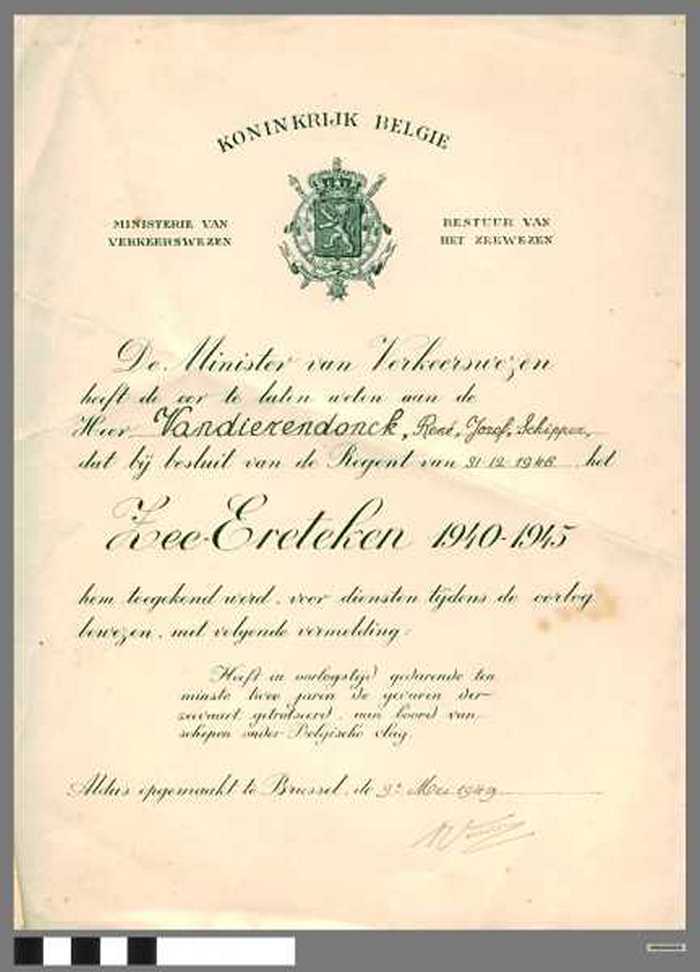 KONINKRIJK BELGIE
MINISTERIE VAN
VERKEERSWEZEN
BESTUUR VAN
HET ZEEWEZEN
De Minister van Verkeerswezen
heeft de eer te laten weten aan de
Heer Vandierendonck, René, Jozef, Schipper,
dat bij besluit van de Regent van 31-12-1946 het
Zee-Ereteken 1940-1945
hem toegekend werd, voor diensten tijdens de oorlog
bewezen, met volgende vermelding:
Heeft in oorlogstijd gedurende ten
minste twee jaren de gevaren der
zeevaart getrotseerd, aan boord van
schepen onder Belgische vlag.
Aldus opgemaakt te Brussel, de 9n Mei 1949